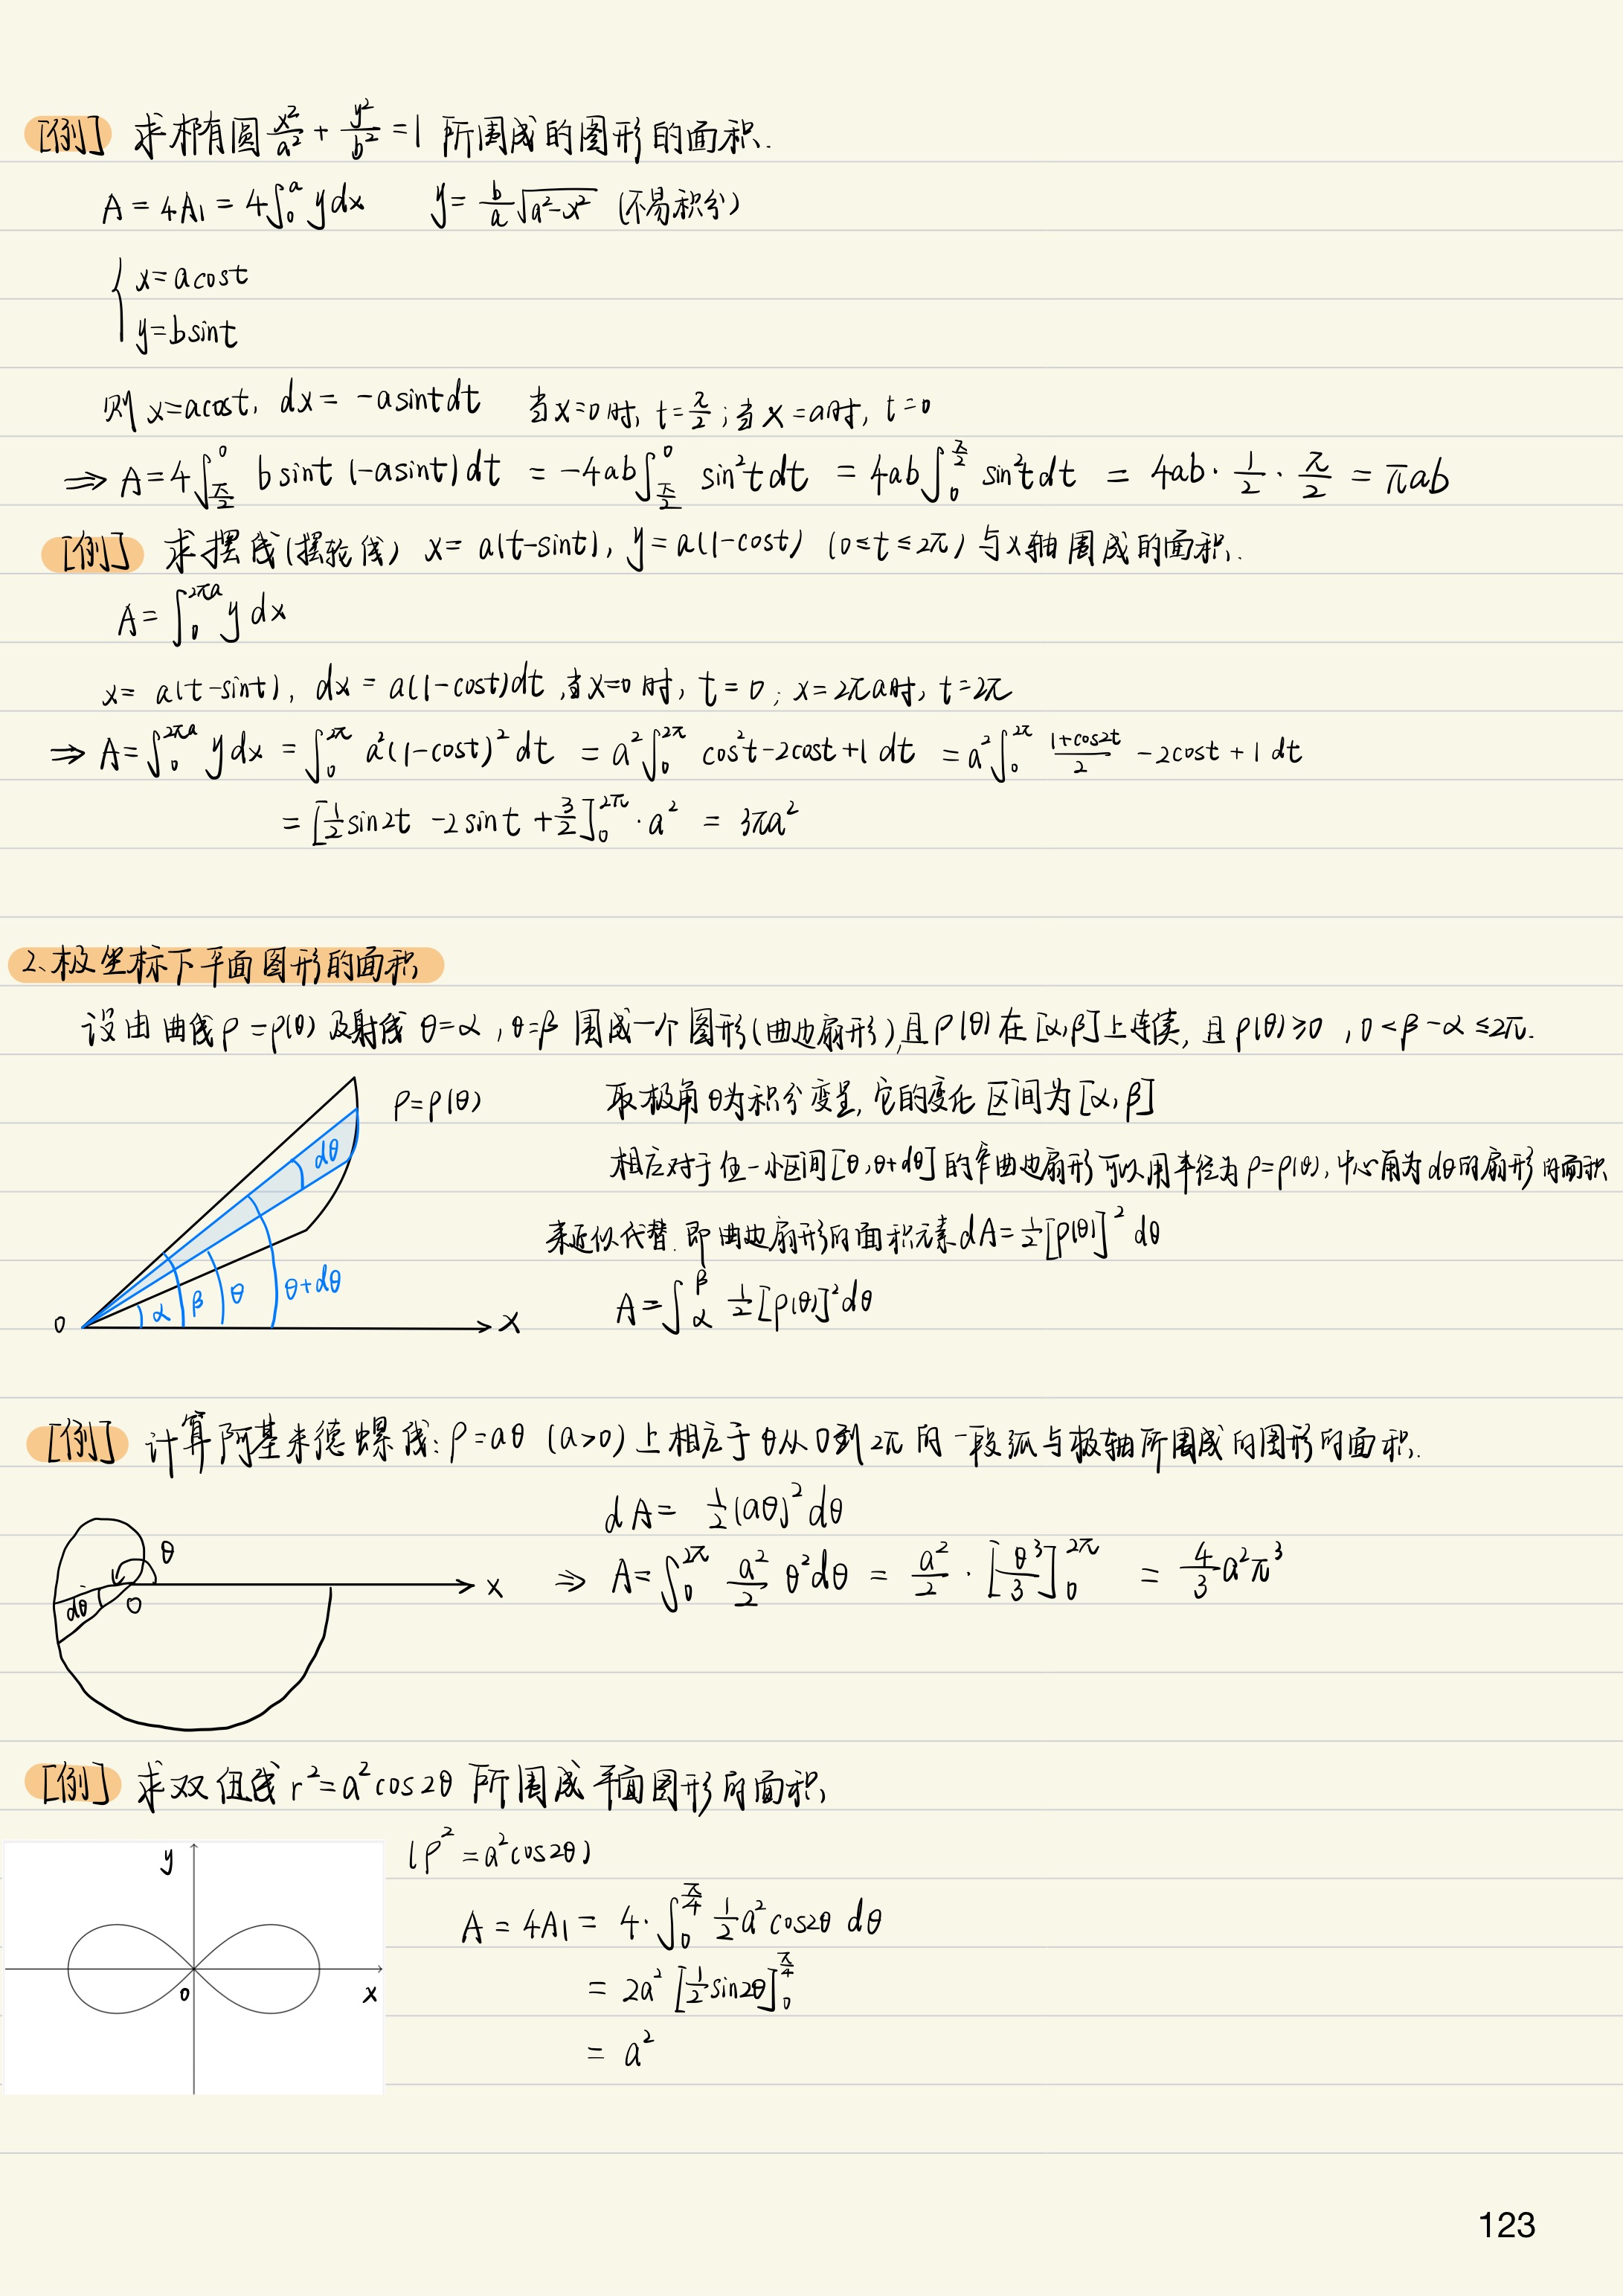 [例] 求椭圆 x²/a² + y²/b² = 1 所围成的图形的面积.
A = 4A₁ = 4∫₀^a y dx  y = b/a √(a²-x²) (不易积分)
{ x = acost
y = bsint
则 x=acost, dx = -asintdt 当x=0时, t=π/2; 当x=a时, t=0
⇒ A = 4∫_{π/2}^0 bsint (-asint)dt = -4ab∫_{π/2}^0 sin²tdt = 4ab∫_0^{π/2} sin²tdt = 4ab · 1/2 · π/2 = πab
[例] 求摆线(摆轮线) x = a(t-sint), y = a(1-cost) (0≤t≤2π) 与x轴围成的面积.
A = ∫_0^{2πa} y dx
x = a(t-sint), dx = a(1-cost)dt, 当x=0时, t=0; x=2πa时, t=2π
⇒ A = ∫_0^{2πa} ydx = ∫_0^{2π} a²(1-cost)² dt = a²∫_0^{2π} cos²t-2cost+1 dt = a²∫_0^{2π} (1+cos2t)/2 - 2cost + 1 dt
= [1/2 sin2t - 2sint + 3/2]_0^{2π} · a² = 3πa²
2、极坐标下平面图形的面积
设由曲线ρ=ρ(θ)及射线θ=α, θ=β围成一个图形(曲边扇形),且ρ(θ)在[α,β]上连续, 且ρ(θ)≥0, 0<β-α≤2π.
ρ=ρ(θ)
取极角θ为积分变量, 它的变化区间为[α,β]
相应对于任一小区间[θ,θ+dθ]的窄曲边扇形可以用半径为ρ=ρ(θ), 中心角为dθ的扇形的面积
来近似代替. 即曲边扇形的面积元素dA = 1/2[ρ(θ)]² dθ
A = ∫_α^β 1/2[ρ(θ)]²dθ
dθ
α β θ θ+dθ
O x
[例] 计算阿基米德螺线: ρ=aθ (a>0)上相应于θ从0到2π的一段弧与极轴所围成的图形的面积.
dA = 1/2(aθ)²dθ
⇒ A = ∫_0^{2π} a²/2 θ²dθ = a²/2 · [θ³/3]_0^{2π} = 4/3 a²π³
θ
x
dθ O
[例] 求双纽线r²=a²cos2θ所围成平面图形的面积.
(ρ²=a²cos2θ)
A = 4A₁ = 4·∫_0^{π/4} 1/2 a²cos2θ dθ
= 2a² [1/2 sin2θ]_0^{π/4}
= a²
y
0 x
123